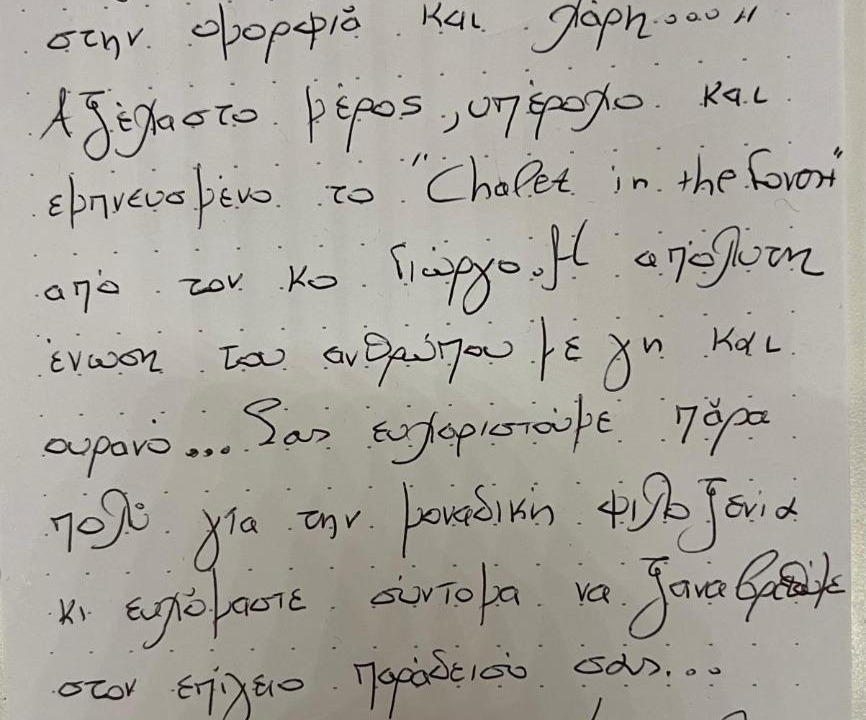 στην ομορφιά και χάρη....."
Αξέχαστο μέρος, υπέροχο και
εμπνευσμένο το "Chalet in the forest"
από τον κο Γιώργο. Η απόλυτη
ένωση του ανθρώπου με γη και
ουρανό... Σας ευχαριστούμε πάρα
πολύ για την μοναδική φιλοξενία
κι ευχόμαστε σύντομα να ξαναβρεθούμε
στον επίγειο παράδεισό σας...